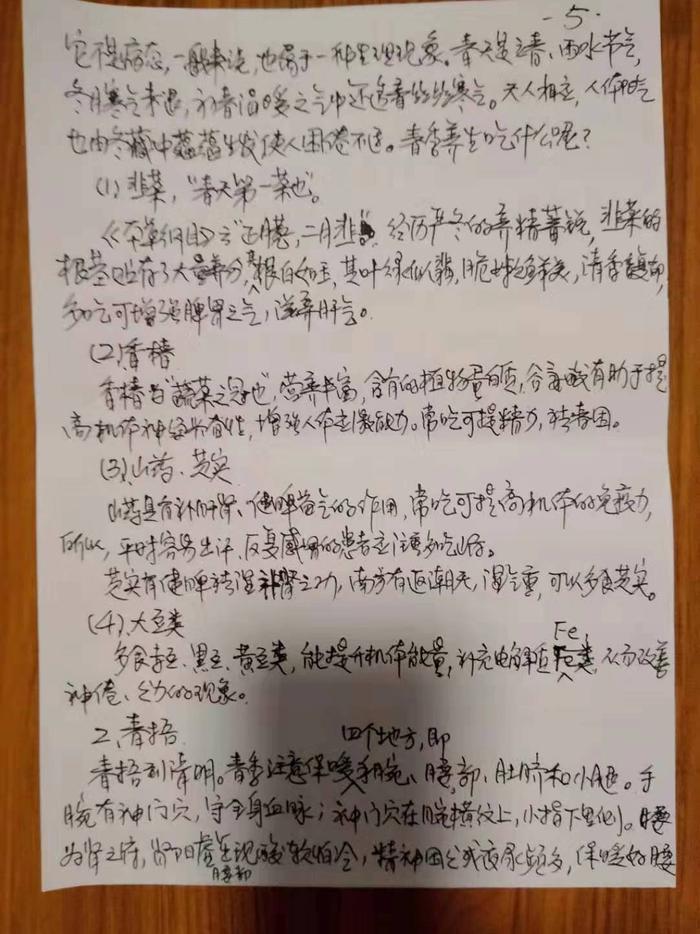 -5.
它不是病态,一般来说,也属于一种生理现象。春天是立春、雨水节气,
冬月寒气未退,初春温暖之气中还透着丝丝寒气。天人相应,人体阳气
也由冬藏中蕴蕴生发使人困倦不适。春季养生吃什么呢?
(1)韭菜,“春天第一菜也”。
《本草纲目》云“正月葱,二月韭”。经历严冬的养精蓄锐,韭菜的
根茎贮存了大量养分,其根白如玉,其叶绿似翡,脆嫩鲜美,清香馥郁,
多吃可增强脾胃之气,滋养肝气。
(2)香椿
香椿为“蔬菜之冠也”,营养丰富,含有的植物蛋白质,谷氨酸有助于提
高机体神经兴奋性,增强人体应激能力。常吃可提精力,祛春困。
(3)山药、芡实
山药具有补肝肾、健脾益气的作用,常吃可提高机体的免疫力,
所以,平时容易出汗,反复感冒的患者应注意多吃山药。
芡实有健脾祛湿补肾之功,南方有返潮天,湿气重,可以多食芡实。
(4)大豆类
多食 豆、黑豆、黄豆类,能提升机体能量,补充电解质Fe, 类,从而改善
神倦、乏力的现象。
2、春捂
春捂到清明。春季注意保暖四个地方,即手腕、腰部、肚脐和小腿。手
腕有神门穴,守全身血脉;神门穴在腕横纹上,小指下里侧。腰
为肾之府,肾阳虚出现腰部酸软怕冷,精神困乏或夜尿频多,保暖好腰